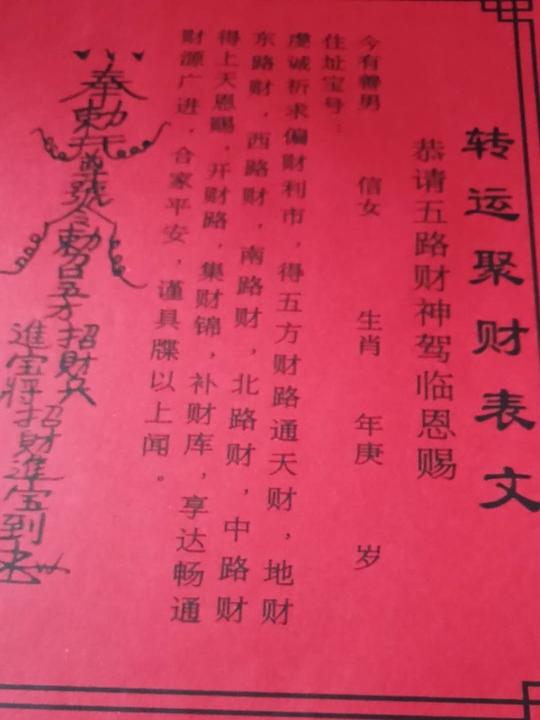 转运聚财表文
恭请五路财神驾临恩赐
今有善男 信女 生肖 年庚 岁
住址宝号：
虔诚祈求偏财利市，得五方财路通天财，地财
东路财，西路财，南路财，北路财，中路财
得上天恩赐，开财路，集财锦，补财库，享达畅通
财源广进，合家平安，谨具牒以上闻。
奉勅
尊號令勅召五
招財
進宝将招財進宝到